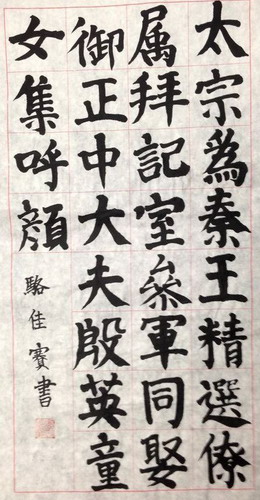 太宗為秦王精選僚
属拜記室叅軍同娶
御正中大夫殷英童
女集呼顔
駱佳賽書